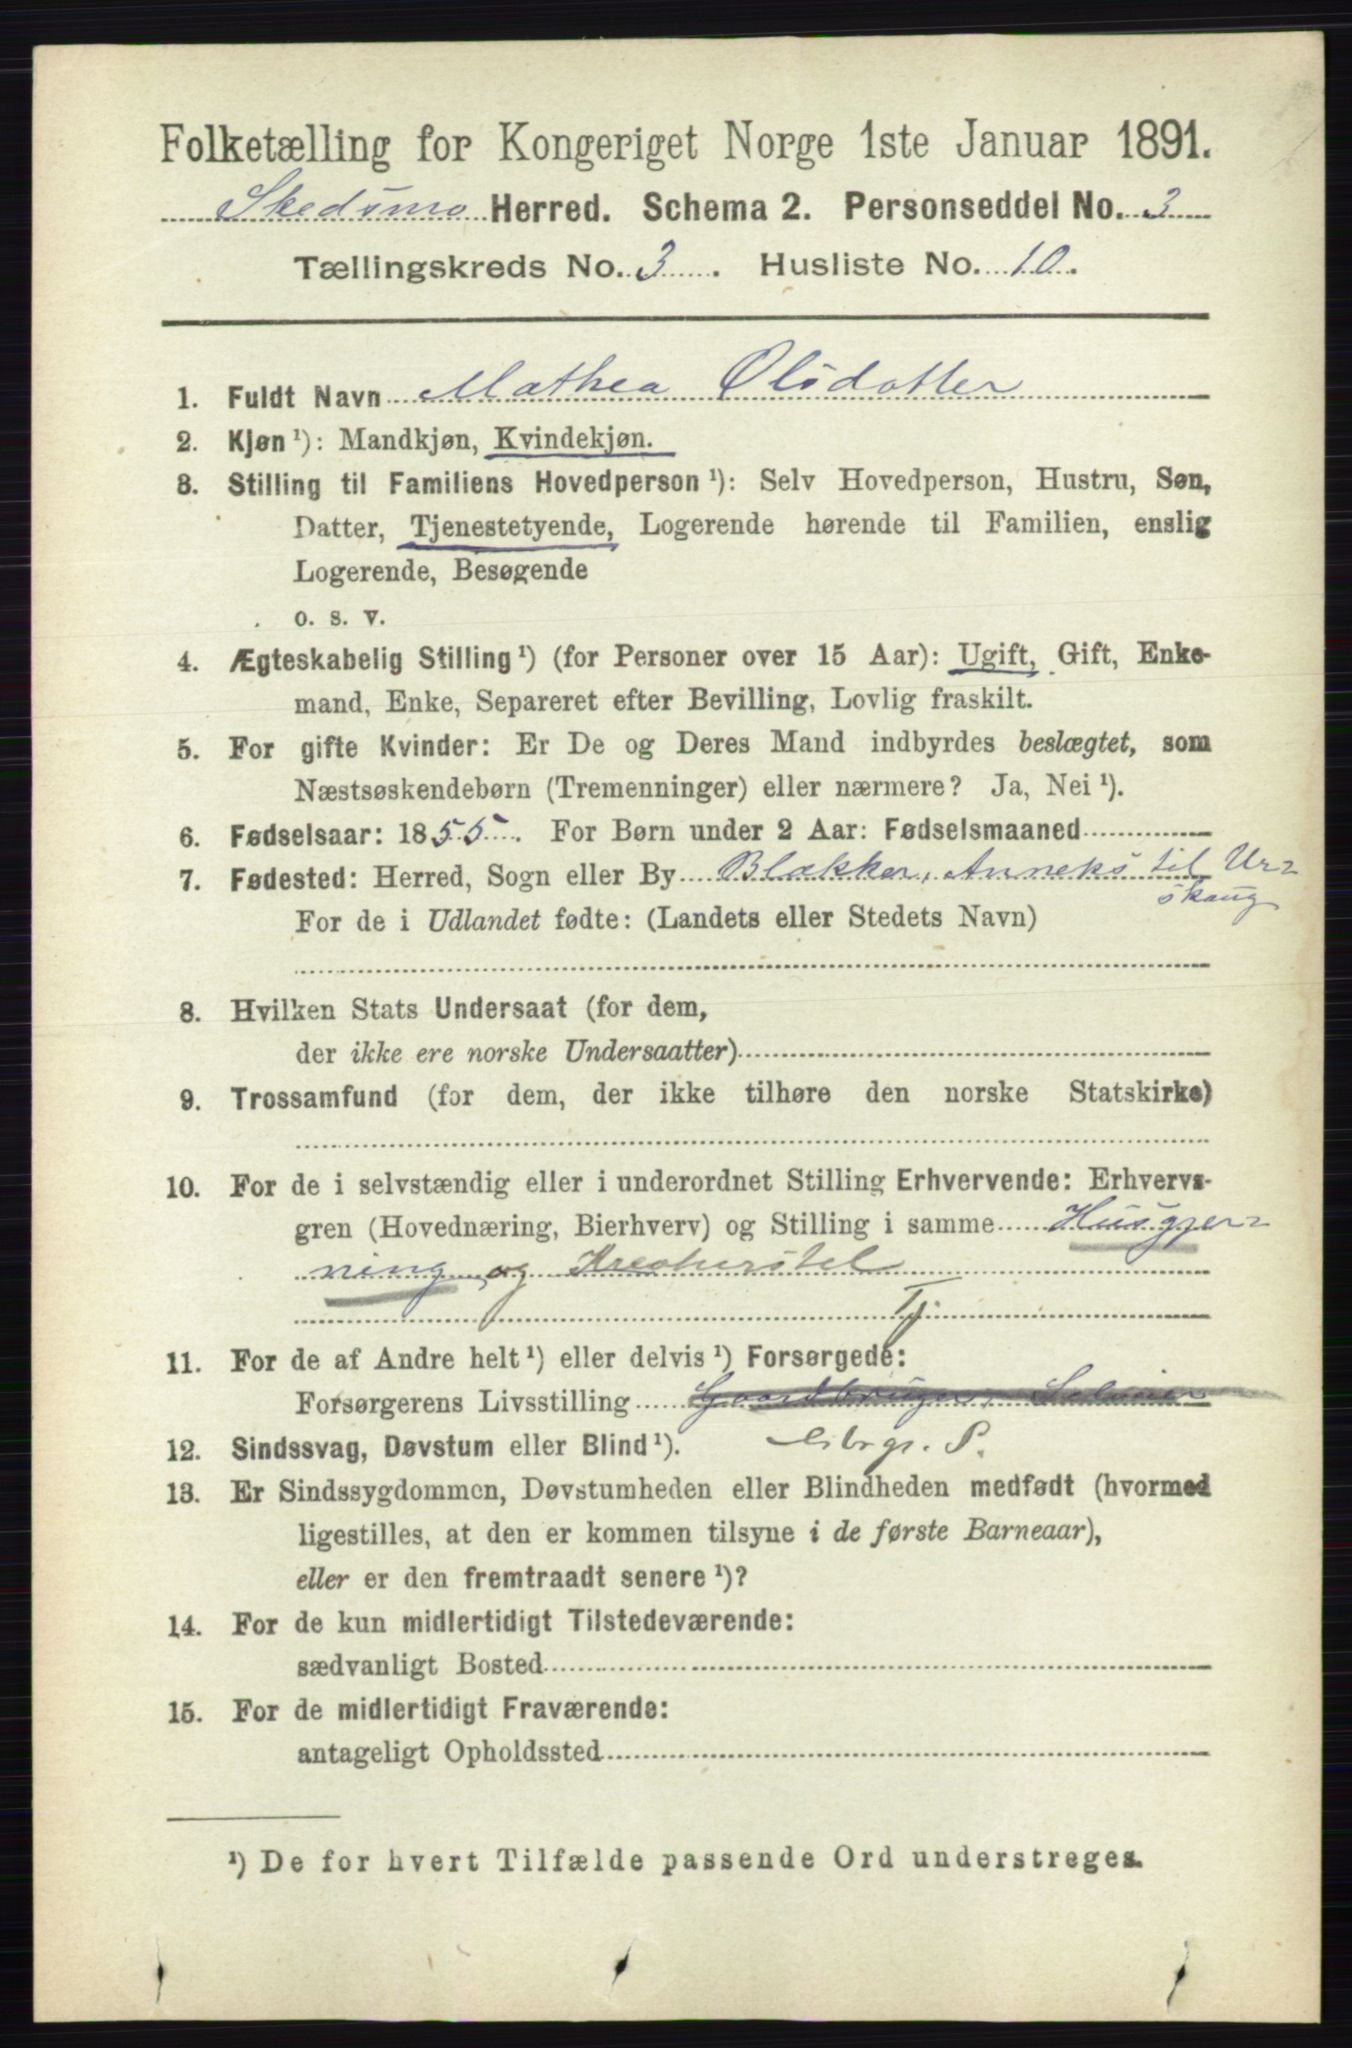 Folketælling for Kongeriget Norge 1ste Januar 1891.
Skedsmo Herred. Schema 2. Personseddel No. 3
Tællingskreds No. 3. Husliste No. 10.
1. Fuldt Navn Mathea Olsdatter
2. Kjøn ¹): Mandkjøn, Kvindekjøn.
3. Stilling til Familiens Hovedperson ¹): Selv Hovedperson, Hustru, Søn,
Datter, Tjenestetyende, Logerende hørende til Familien, enslig
Logerende, Besøgende
o. s. v.
4. Ægteskabelig Stilling ¹) (for Personer over 15 Aar): Ugift, Gift, Enke-
mand, Enke, Separeret efter Bevilling, Lovlig fraskilt.
5. For gifte Kvinder: Er De og Deres Mand indbyrdes beslægtet, som
Næstsøskendebørn (Tremenninger) eller nærmere? Ja, Nei ¹).
6. Fødselsaar: 1855. For Børn under 2 Aar: Fødselsmaaned
7. Fødested: Herred, Sogn eller By Blakker, Anneks til Ur=
skaug
For de i Udlandet fødte: (Landets eller Stedets Navn)
8. Hvilken Stats Undersaat (for dem,
der ikke ere norske Undersaatter)
9. Trossamfund (for dem, der ikke tilhøre den norske Statskirke)
10. For de i selvstændig eller i underordnet Stilling Erhvervende: Erhvervs-
gren (Hovednæring, Bierhverv) og Stilling i samme Husgjer=
ning og Kreaturstel
Tj.
11. For de af Andre helt ¹) eller delvis ¹) Forsørgede:
Forsørgerens Livsstilling Gaardbruger, Selveier
12. Sindssvag, Døvstum eller Blind ¹).
13. Er Sindssygdommen, Døvstumheden eller Blindheden medfødt (hvormed
ligestilles, at den er kommen tilsyne i de første Barneaar),
eller er den fremtraadt senere ¹)?
14. For de kun midlertidigt Tilstedeværende:
sædvanligt Bosted
15. For de midlertidigt Fraværende:
antageligt Opholdssted
¹) De for hvert Tilfælde passende Ord understreges.